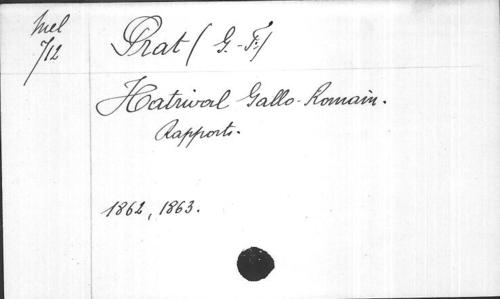 Mel
7/12
Prat (G.-F.)
Hatrival Gallo-Romain.
Rapports.
1862, 1863.